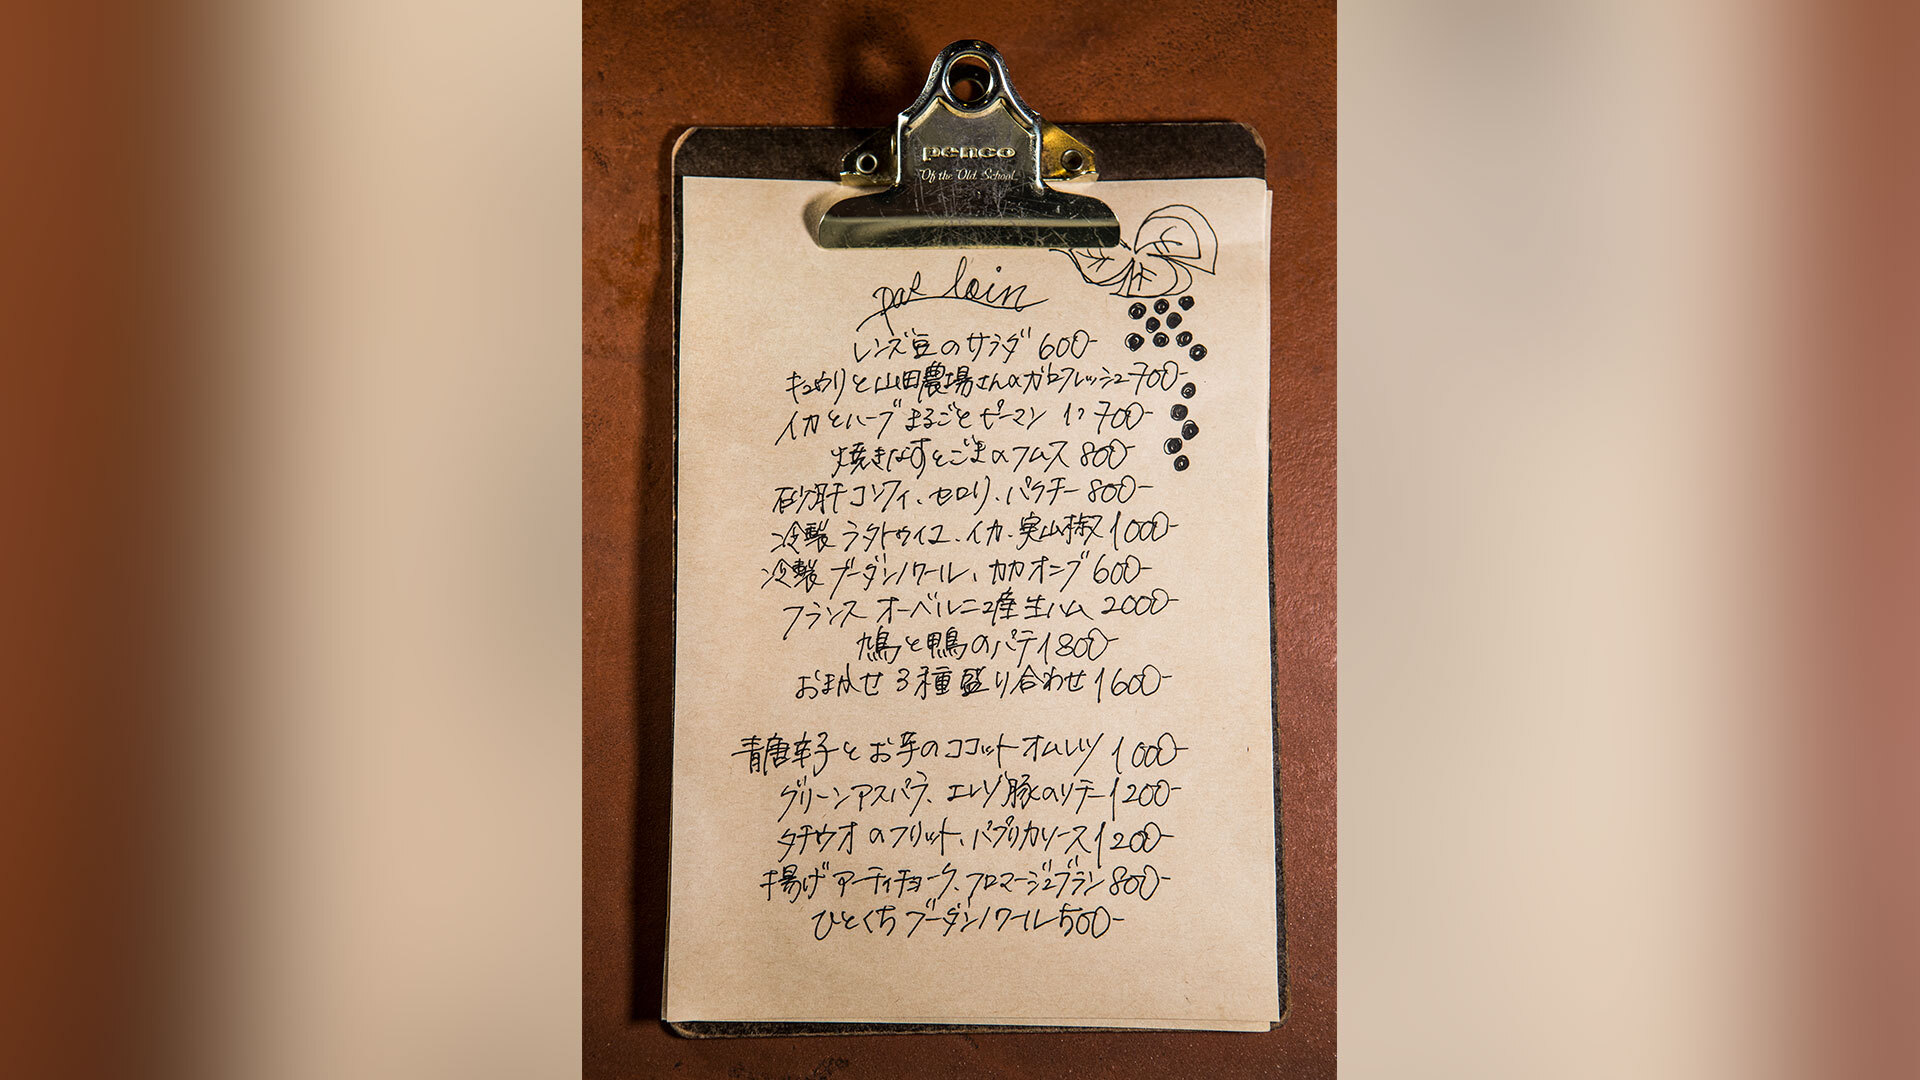 penco
Of the Old School
pas loin
レンズ豆のサラダ 600-
キュウリと山田農場さんのガロフレッシュ 700-
イカとハーブ まるごとピーマン 1コ 700-
焼きなすとごまのフムス 800-
砂肝コンフィ、セロリ、パクチー 800-
冷製 ラタトゥイユ、イカ、実山椒 1000-
冷製 ブーダンノワール、カカオニブ 600-
フランス オーベルニュ産生ハム 2000-
鳩と鴨のパテ 1800-
おまかせ 3種盛り合わせ 1600-
青唐辛子とお芋のココット オムレツ 1000-
グリーンアスパラ、エレゾ豚のソテー 1200-
タチウオのフリット、パプリカソース 1200-
揚げアーティチョーク、フロマージュブラン 800-
ひとくち ブーダンノワール 500-